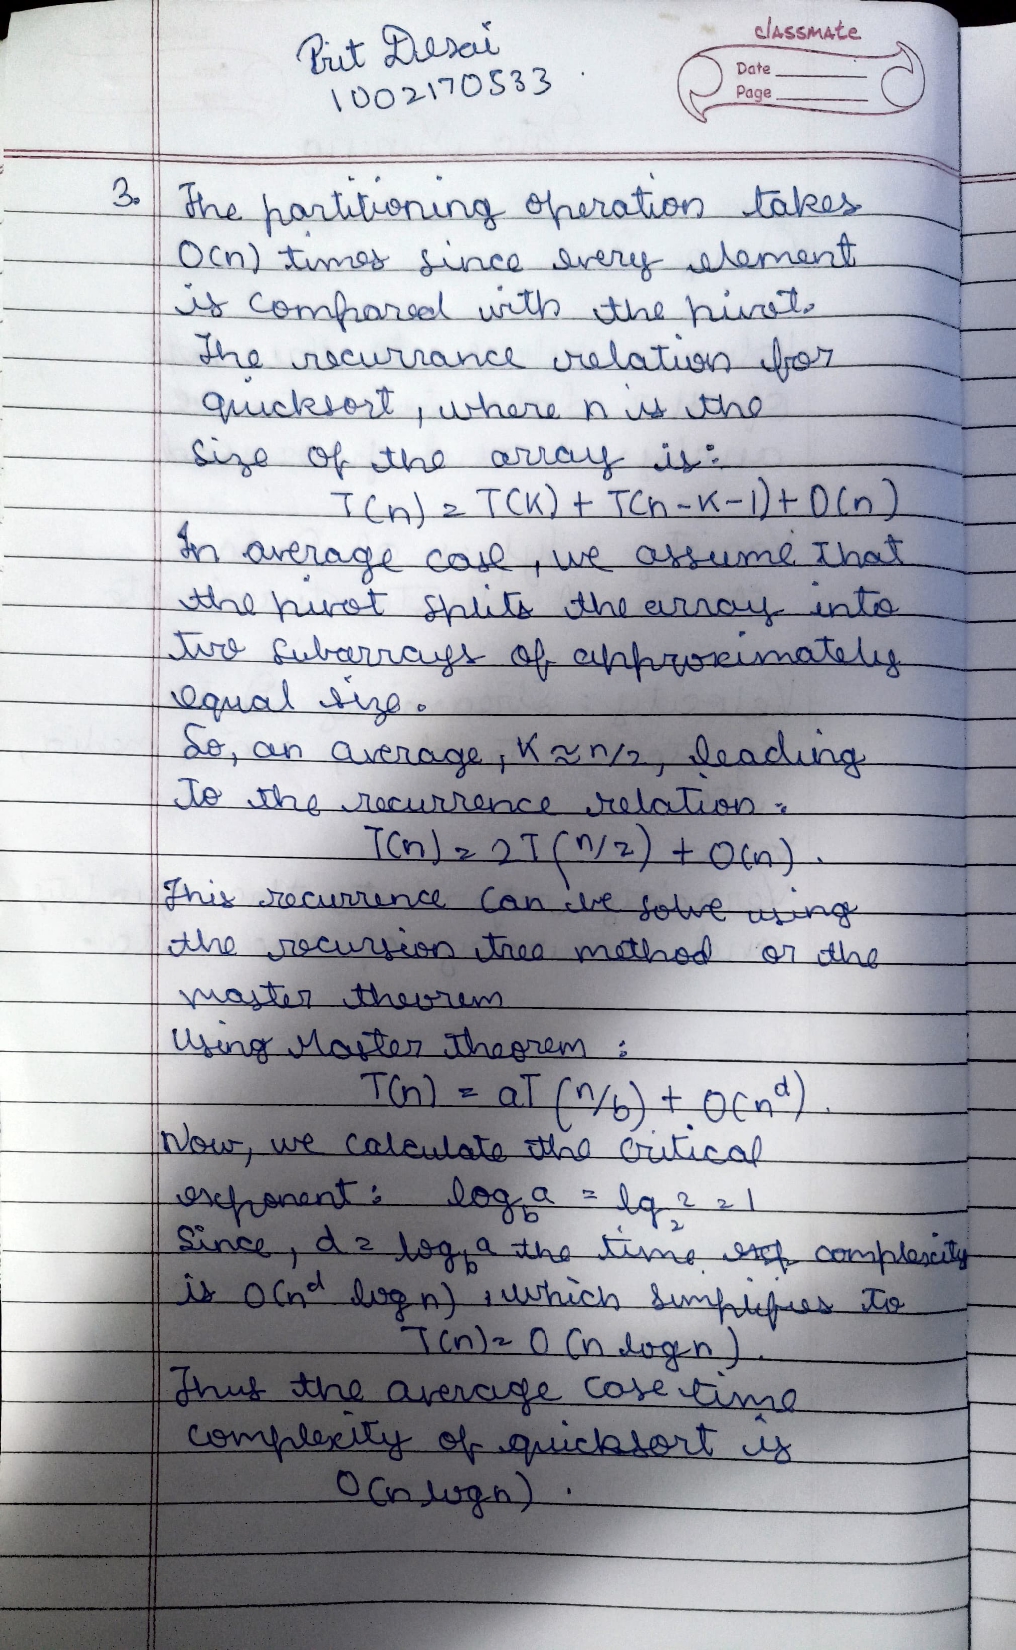 Prit Desai
1002170533
classmate
Date
Page
3. The partitioning operation takes
O(n) times since every element
is compared with the pivot.
The recurrance relation for
quicksort, where n is the
size of the array is:
T(n) = T(K) + T(n-K-1) + O(n)
In average case, we assume that
the pivot splits the array into
two subarrays of approximately
equal size.
So, an average, K ≈ n/2, leading
to the recurrence relation:
T(n) = 2T(n/2) + O(n).
This recurrence can be solve using
the recursion tree method or the
master theorem
Using Master Theorem :
T(n) = aT(n/b) + O(n^d).
Now, we calculate the critical
exponent: log_b a = lg_2 2 = 1
Since, d = log_b a the time complexity
is O(n^d log n), which simplifies to
T(n) = O(n log n).
Thus the average case time
complexity of quicksort is
O(n log n).